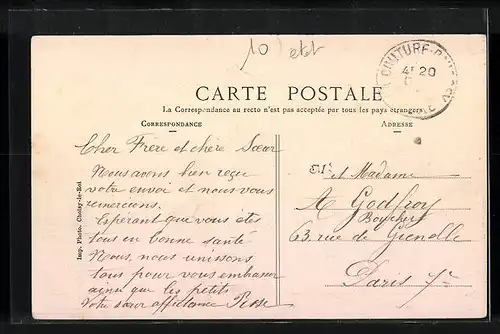 10 etst
COUTURE-BOUSSEY
4E 20
CARTE POSTALE
La Correspondance au recto n'est pas acceptée par tous les pays étrangers
CORRESPONDANCE
ADRESSE
Cher Frère et chère Sœur
Nous avons bien reçu
votre envoi et nous vous
remercions,
Espérant que vous êts
tous en bonne santé
Nous, nous unissons
tous pour vous embrasser
ainsi que les petits
Votre sœur affectionnée Rose
et Madame
A Godfroy
Boucher
63, rue de Grenelle
Paris 7e
Imp. Photo. Choisy-le-Roi